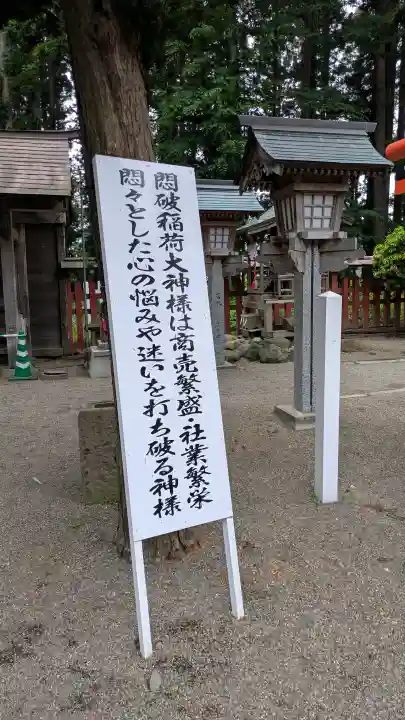 悶破稲荷大神様は商売繁盛・社業繁栄
悶々とした心の悩みや迷いを打ち破る神様